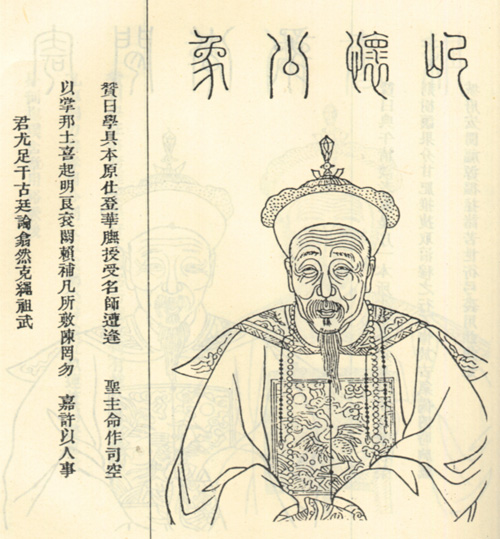 屺懷公象
贊曰學具本原仕登華膴授受名師遭逢 聖主命作司空
以掌邦土喜起明良袞闕賴補凡所敷陳罔勿 嘉許以人事
君尤足千古廷論翕然克繩祖武